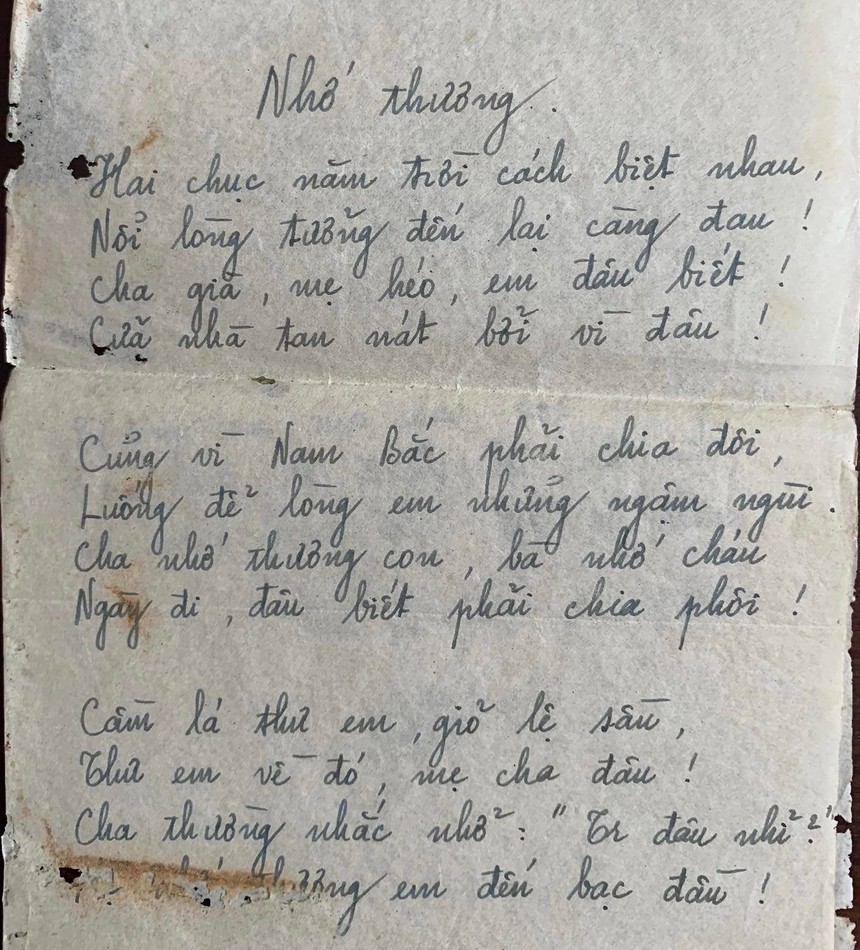 Nhớ thương.
Hai chục năm trời cách biệt nhau,
Nổi lòng tưởng đến lại càng đau !
Cha già, mẹ héo, em đâu biết !
Cửa nhà tan nát bởi vì đâu !
Cũng vì Nam Bắc phải chia đôi,
Luống để lòng em những ngậm ngùi.
Cha nhớ thương con, bà nhớ cháu
Ngày đi, đâu biết phải chia phôi !
Cầm lá thư em, giỏ lệ sầu,
Thư em về đó, mẹ cha đâu !
Cha thường nhắc nhở: "Tr đâu nhỉ?"
thương em đến bạc đầu !